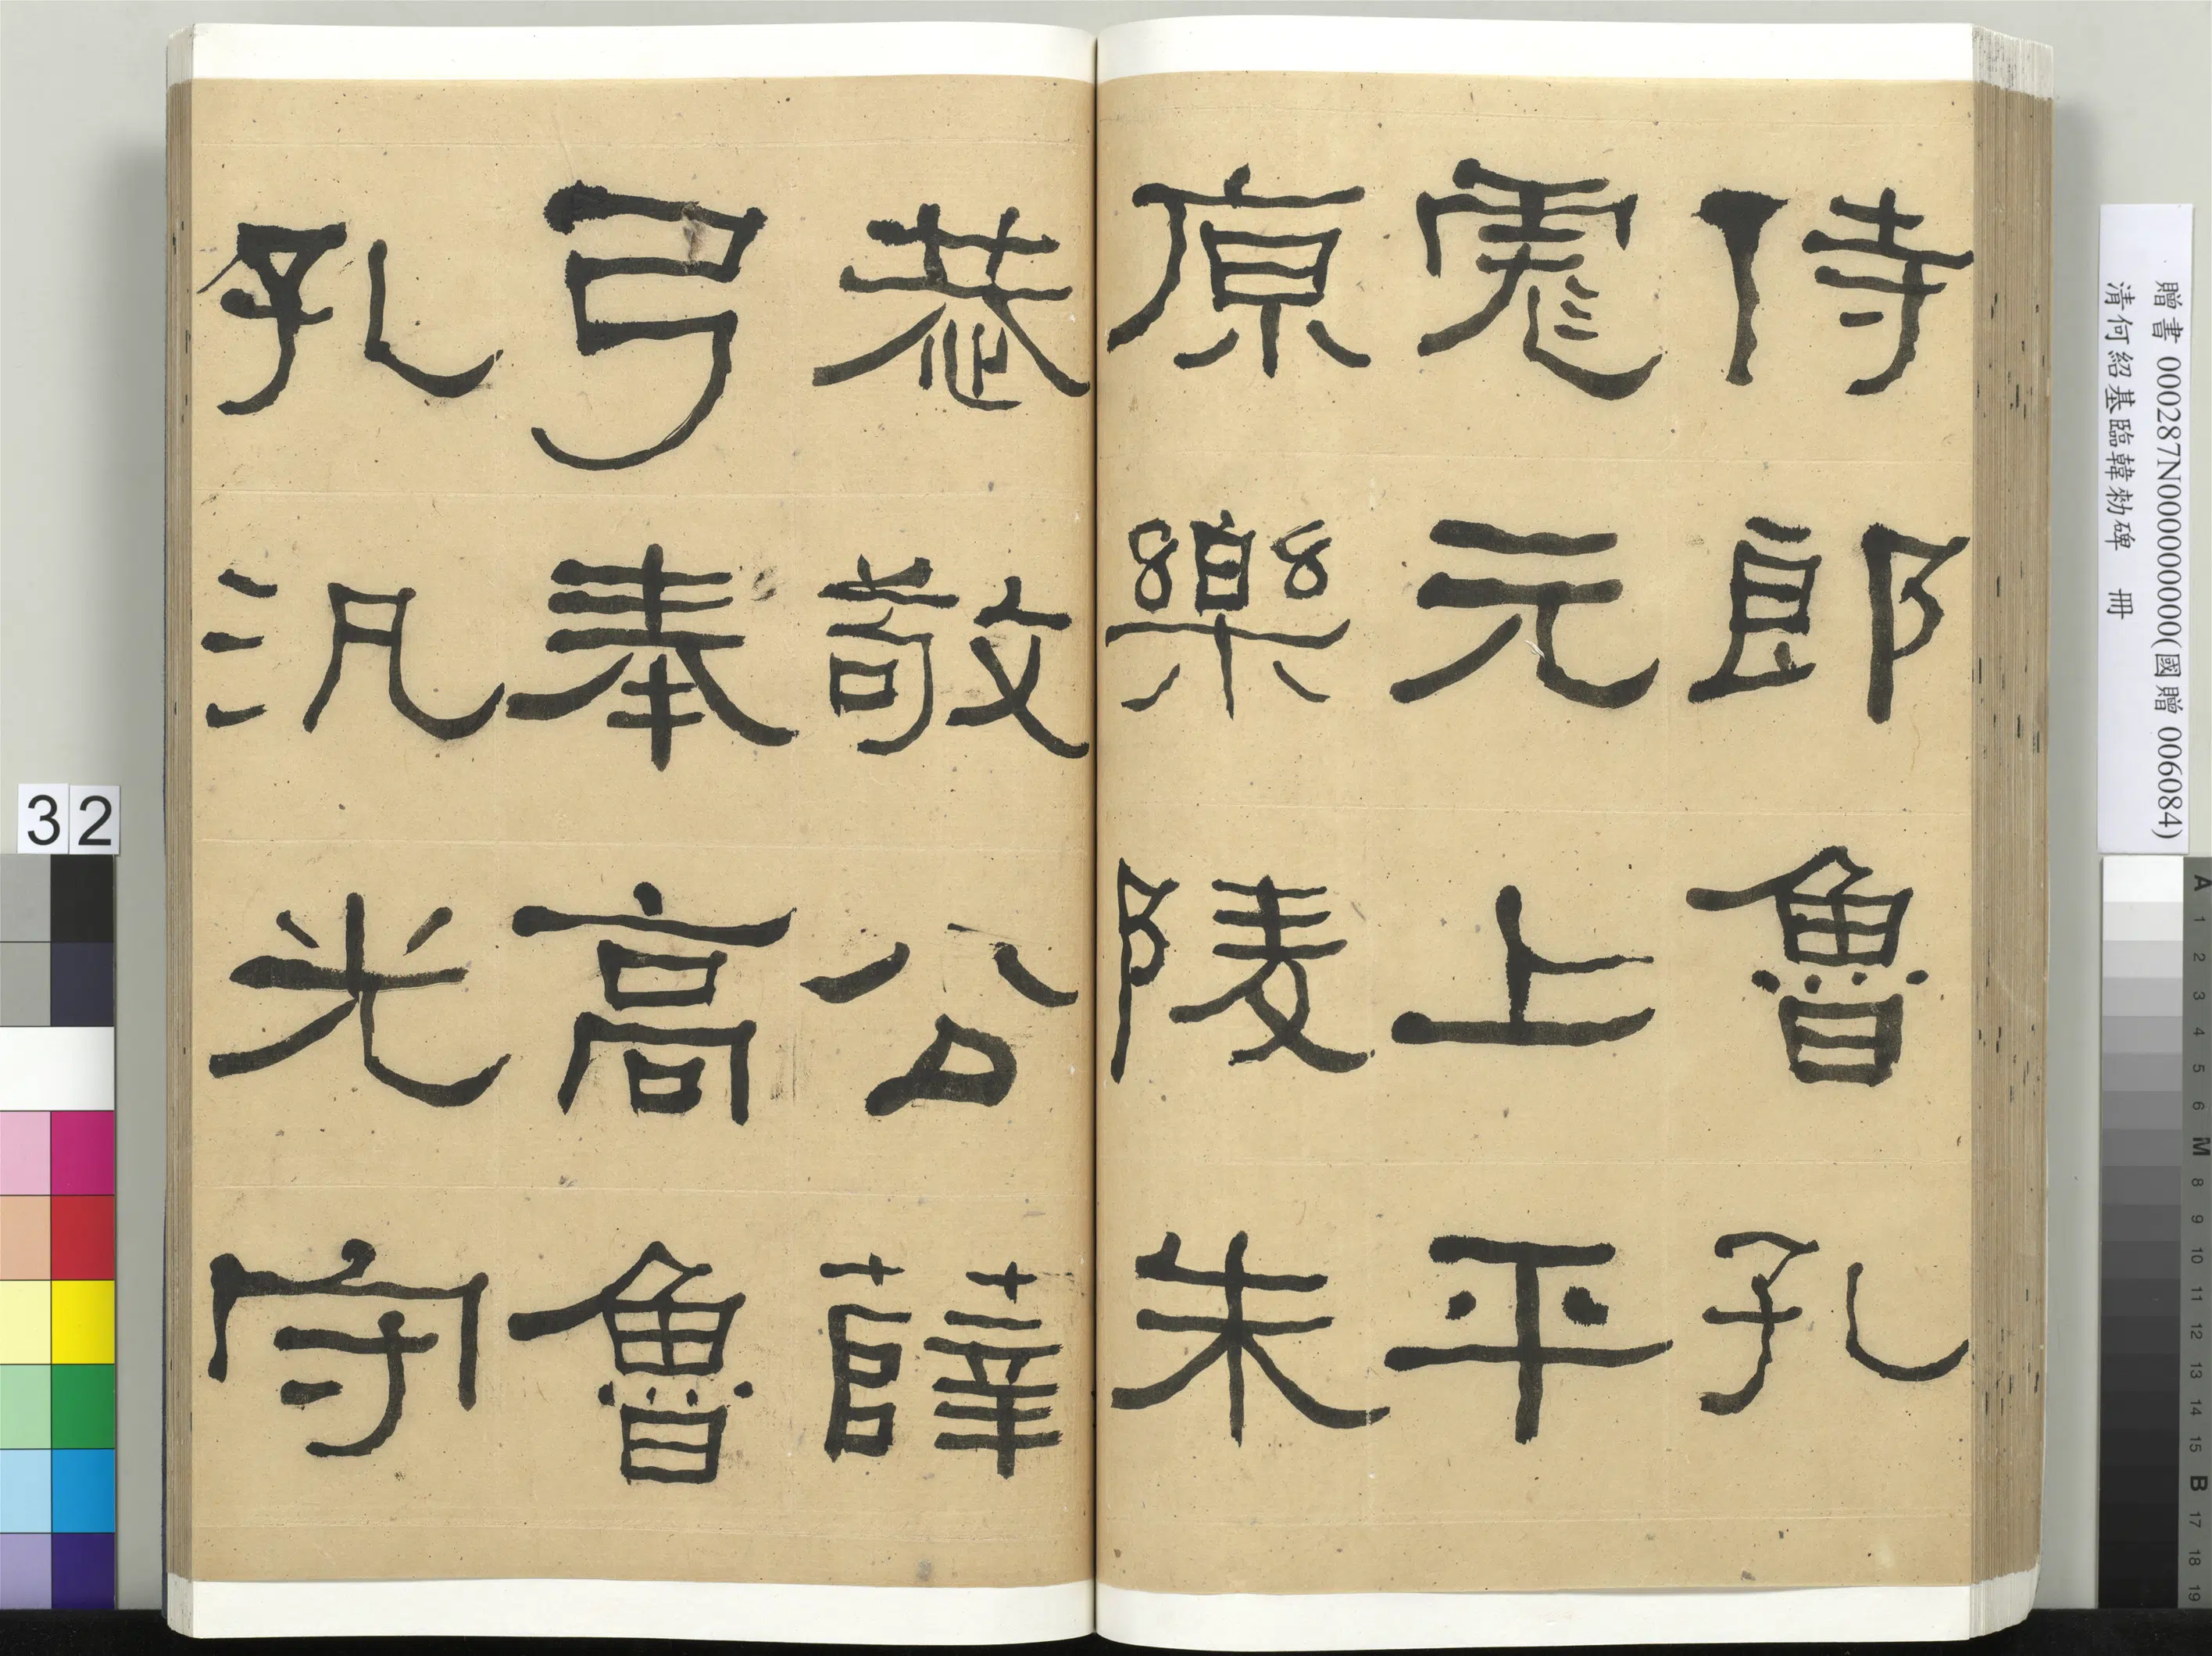 侍郎魯孔
彪元上平
原樂陵朱
恭敬公薛
弓奉高魯
孔汎光守
贈書 000287N000000000(國贈 006084)
清何紹基臨韓勑碑 冊
32
A 1 2 3 4 5 6 M 8 9 10 11 12 13 14 15 B 17 18 19